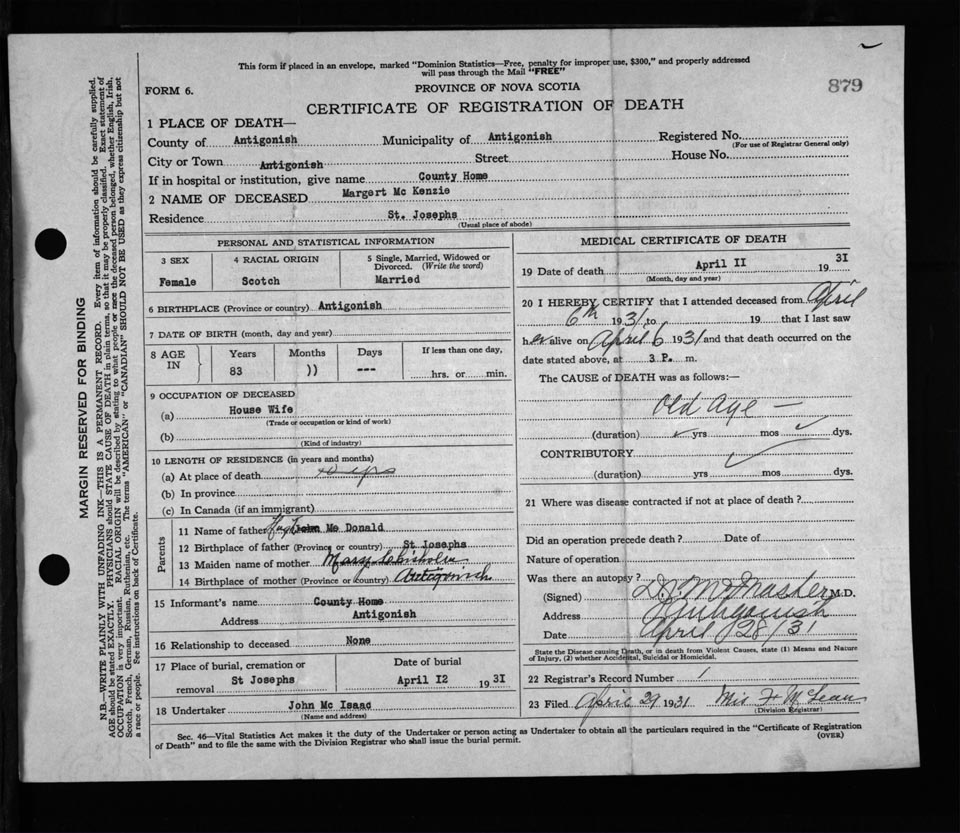 This form if placed in an envelope, marked "Dominion Statistics—Free, penalty for improper use, $300," and properly addressed
will pass through the Mail "FREE"
FORM 6.
PROVINCE OF NOVA SCOTIA
879
CERTIFICATE OF REGISTRATION OF DEATH
1 PLACE OF DEATH—
County of Antigonish Municipality of Antigonish Registered No.
(For use of Registrar General only)
City or Town Antigonish Street House No.
If in hospital or institution, give name County Home
2 NAME OF DECEASED Margert Mc Kenzie
Residence St. Josephs
(Usual place of abode)
PERSONAL AND STATISTICAL INFORMATION
3 SEX 4 RACIAL ORIGIN 5 Single, Married, Widowed or
Divorced. (Write the word)
Female Scotch Married
6 BIRTHPLACE (Province or country) Antigonish
7 DATE OF BIRTH (month, day and year)
8 AGE IN Years Months Days If less than one day,
83 )) --- hrs. or min.
9 OCCUPATION OF DECEASED
(a) House Wife
(Trade or occupation or kind of work)
(b)
(Kind of industry)
10 LENGTH OF RESIDENCE (in years and months)
(a) At place of death yrs
(b) In province
(c) In Canada (if an immigrant)
Parents
11 Name of father Hugh John Mc Donald
12 Birthplace of father (Province or country) St Josephs
13 Maiden name of mother Mary Chisholm
14 Birthplace of mother (Province or country) Antigonish
15 Informant's name County Home
Address Antigonish
16 Relationship to deceased None
17 Place of burial, cremation or Date of burial
removal St Josephs April I2 1931
18 Undertaker John Mc Isaac
(Name and address)
MEDICAL CERTIFICATE OF DEATH
19 Date of death April II 1931
(Month, day and year)
20 I HEREBY CERTIFY that I attended deceased from April
6th 1931, to 19 that I last saw
her alive on April 6 1931 and that death occurred on the
date stated above, at 3 P. m.
The CAUSE of DEATH was as follows:—
Old Age —
(duration) yrs mos dys.
CONTRIBUTORY
(duration) yrs mos dys.
21 Where was disease contracted if not at place of death?
Did an operation precede death? Date of
Nature of operation
Was there an autopsy?
(Signed) M.D.
Address Antigonish
Date April 28/31
State the Disease causing Death, or in death from Violent Causes, state (1) Means and Nature
of Injury, (2) whether Accidental, Suicidal or Homicidal.
22 Registrar's Record Number 1
23 Filed April 29 1931
(Division Registrar)
Sec. 46—Vital Statistics Act makes it the duty of the Undertaker or person acting as Undertaker to obtain all the particulars required in the "Certificate of Registration
of Death" and to file the same with the Division Registrar who shall issue the burial permit.
(OVER)
MARGIN RESERVED FOR BINDING
N.B.—WRITE PLAINLY WITH UNFADING INK—THIS IS A PERMANENT RECORD. Every item of information should be carefully supplied.
AGE should be stated EXACTLY. PHYSICIANS should STATE CAUSE OF DEATH in plain terms, so that it may be properly classified. Exact statement of
OCCUPATION is very important. RACIAL ORIGIN will be described by stating to what people or race the deceased person belonged, whether English, Irish,
Scotch, French, German, Russian, Ruthenian, etc. The terms "AMERICAN" or "CANADIAN" SHOULD NOT BE USED as they express citizenship but not
a race or people. See instructions on back of Certificate.